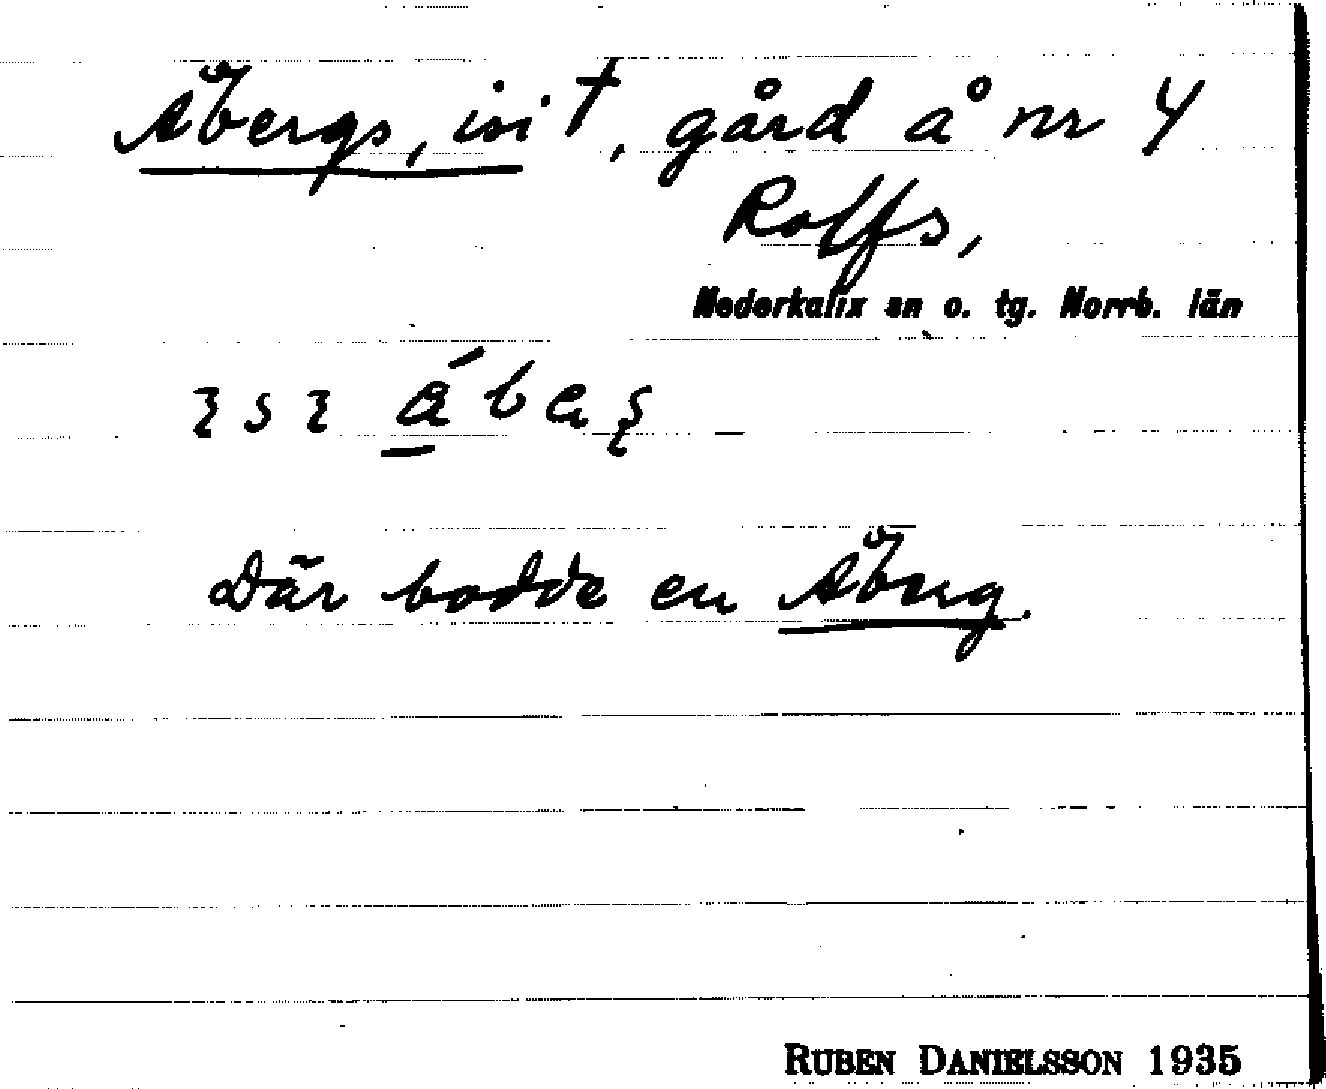 Åbergs, isi †, gård å nr 4
Rolfs,
Nederkalix sn o. tg. Norrb. län
Där bodde en Åberg.
RUBEN DANIELSSON 1935